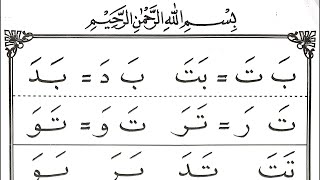 بِسْمِ اللهِ الرَّحْمٰنِ الرَّحِيْمِ
بَ تَ = بَتَ بَ دَ = بَدَ
تَ رَ = تَرَ تَ وَ = تَوَ
تَتَ تَدَ بَرَ بَوَ